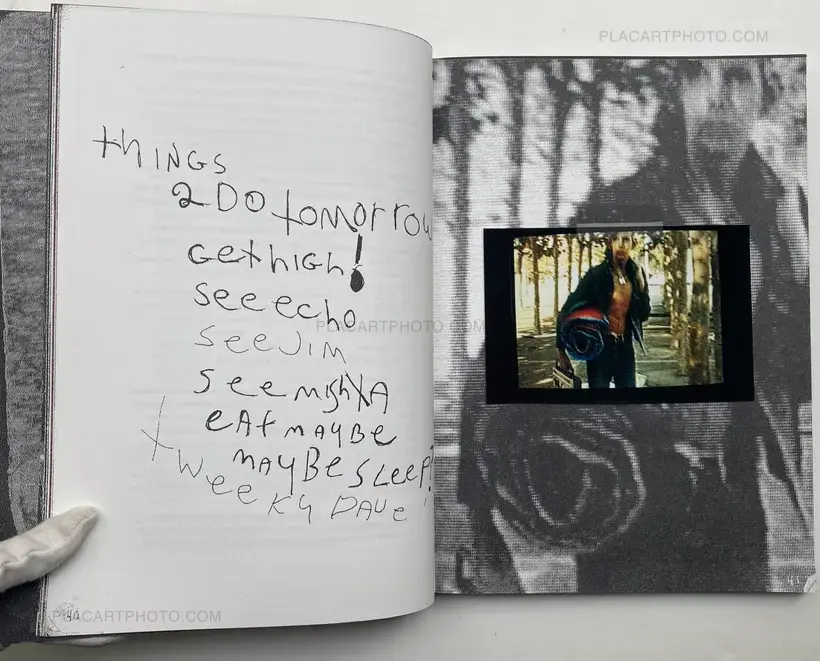 PLACARTPHOTO.COM
tHINGS
2 DO tomorrow
Get HIGH!
See echo
See JIM
See mishKA
eAt MAYBe
MAYBe SLeeP?
tweeKY DAVe
PLACARTPHOTO.COM
PLACARTPHOTO.COM
41